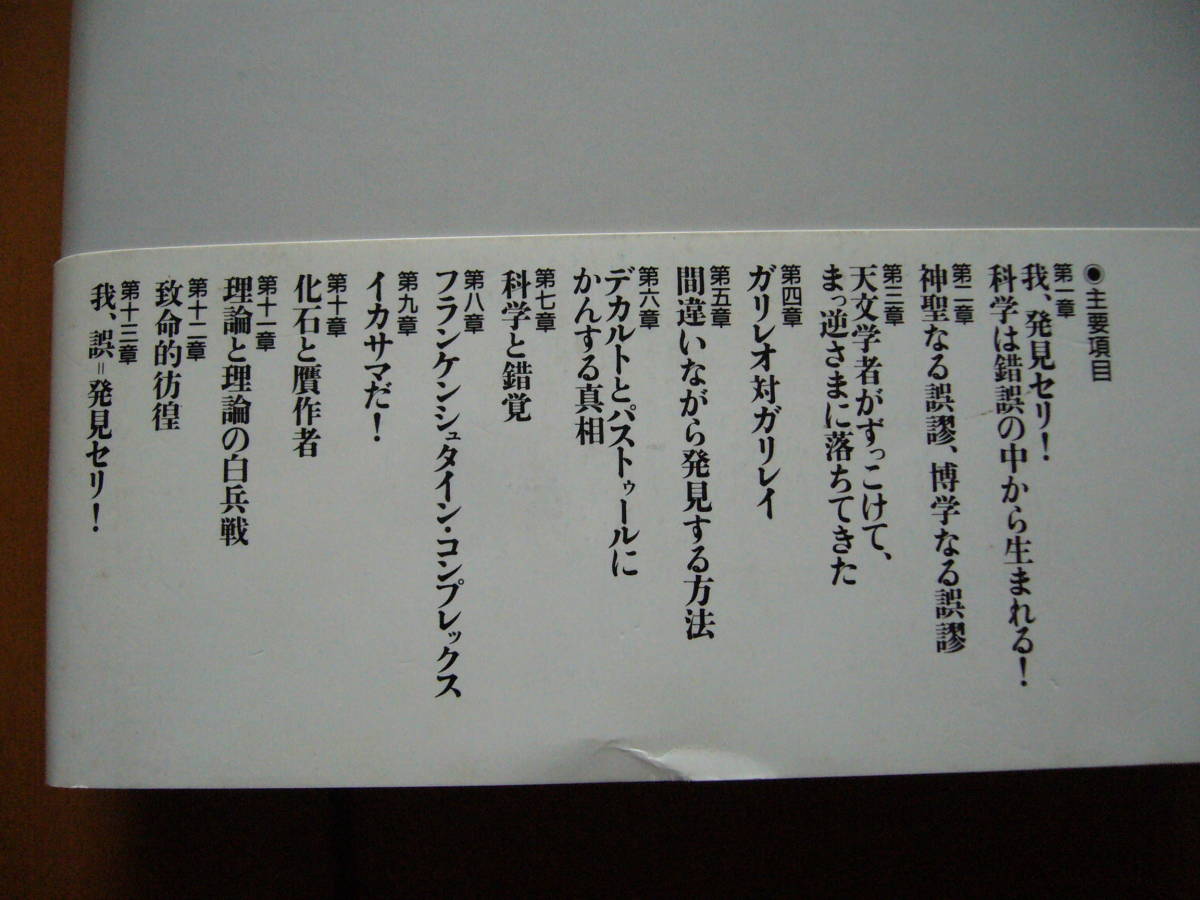 ◉主要項目
第一章
我、発見セリ!
科学は錯誤の中から生まれる!
第二章
神聖なる誤謬、博学なる誤謬
第三章
天文学者がずっこけて、
まっ逆さまに落ちてきた
第四章
ガリレオ対ガリレイ
第五章
間違いながら発見する方法
第六章
デカルトとパストゥールに
かんする真相
第七章
科学と錯覚
第八章
フランケンシュタイン・コンプレックス
第九章
イカサマだ!
第十章
化石と贋作者
第十一章
理論と理論の白兵戦
第十二章
致命的彷徨
第十三章
我、誤=発見セリ!